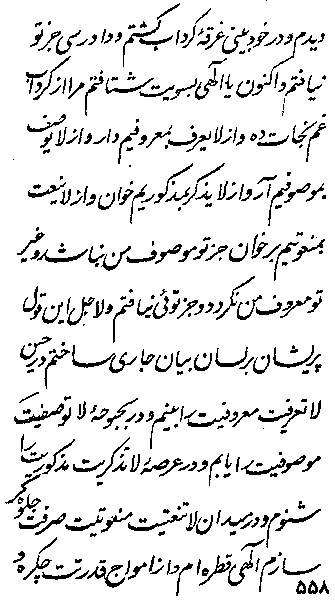 دیدم و در خود بینی غرقهٔ گرداب گشتم و دادرسی جز تو
نیافتم و اکنون یا الهی بسویت شتافتم مرا از گرداب
غم نجات ده و از لا یعرف بمعروفیم دار و از لا یوصف
بموصوفیم آر و از لا یذکر بمذکوریم خوان و از لا ینعت
بمنعوتیم برخوان جز تو موصوف من نباشد و غیر
تو معروف من نگردد و جز توئی نیافتم و لاجل این قول
پریشان بر لسان بیان جاری ساختم در حین
لا تعرفیت معروفیت را بینم و در بحبوحهٔ لا توصفیت
موصوفیت را یابم و در عرصهٔ لا تذکریت مذکوریت را
شنوم و در میدان لا تنعتیت منعوتیت صرفت جلوه گر
سازم الهی قطره ام و از امواج قدرتت چکره و
۵۵۸